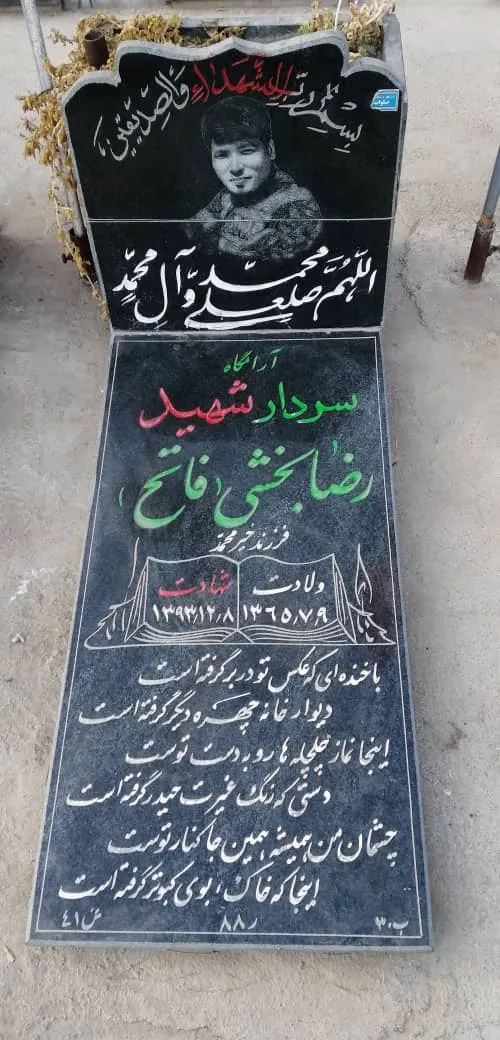 بسم رب الشهداء والصدیقین
اللهم صل علی محمد و آل محمد
آرامگاه
سردار شهید
رضا بخشی (فاتح)
فرزند خیر محمد
ولادت شهادت
۱۳٦۵٫۷٫۹ ۱۳۹۳٫۱۲٫۸
باخنده ای که عکس تو در بر گرفته است
دیوار خانه چهره دیگر گرفته است
اینجا نماز چلچله ها رو به دست توست
دستی که رنگ غیرت حیدر گرفته است
چشمان من همیشه همین جا کنار توست
اینجا که خاک، بوی کبوتر گرفته است
ب۳۰ ر۸۸ ش٤۱